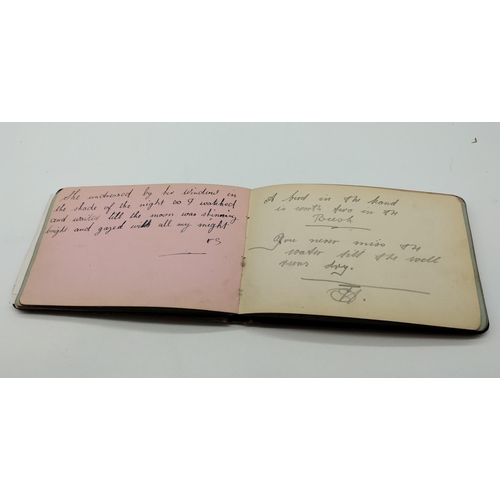 She undressed by her window in
the shade of the night so I watched
and waited till the moon was shining
bright and gazed with all my might
A bird in the hand
is worth two in the
Bush
You never miss the
water till the well
runs dry.